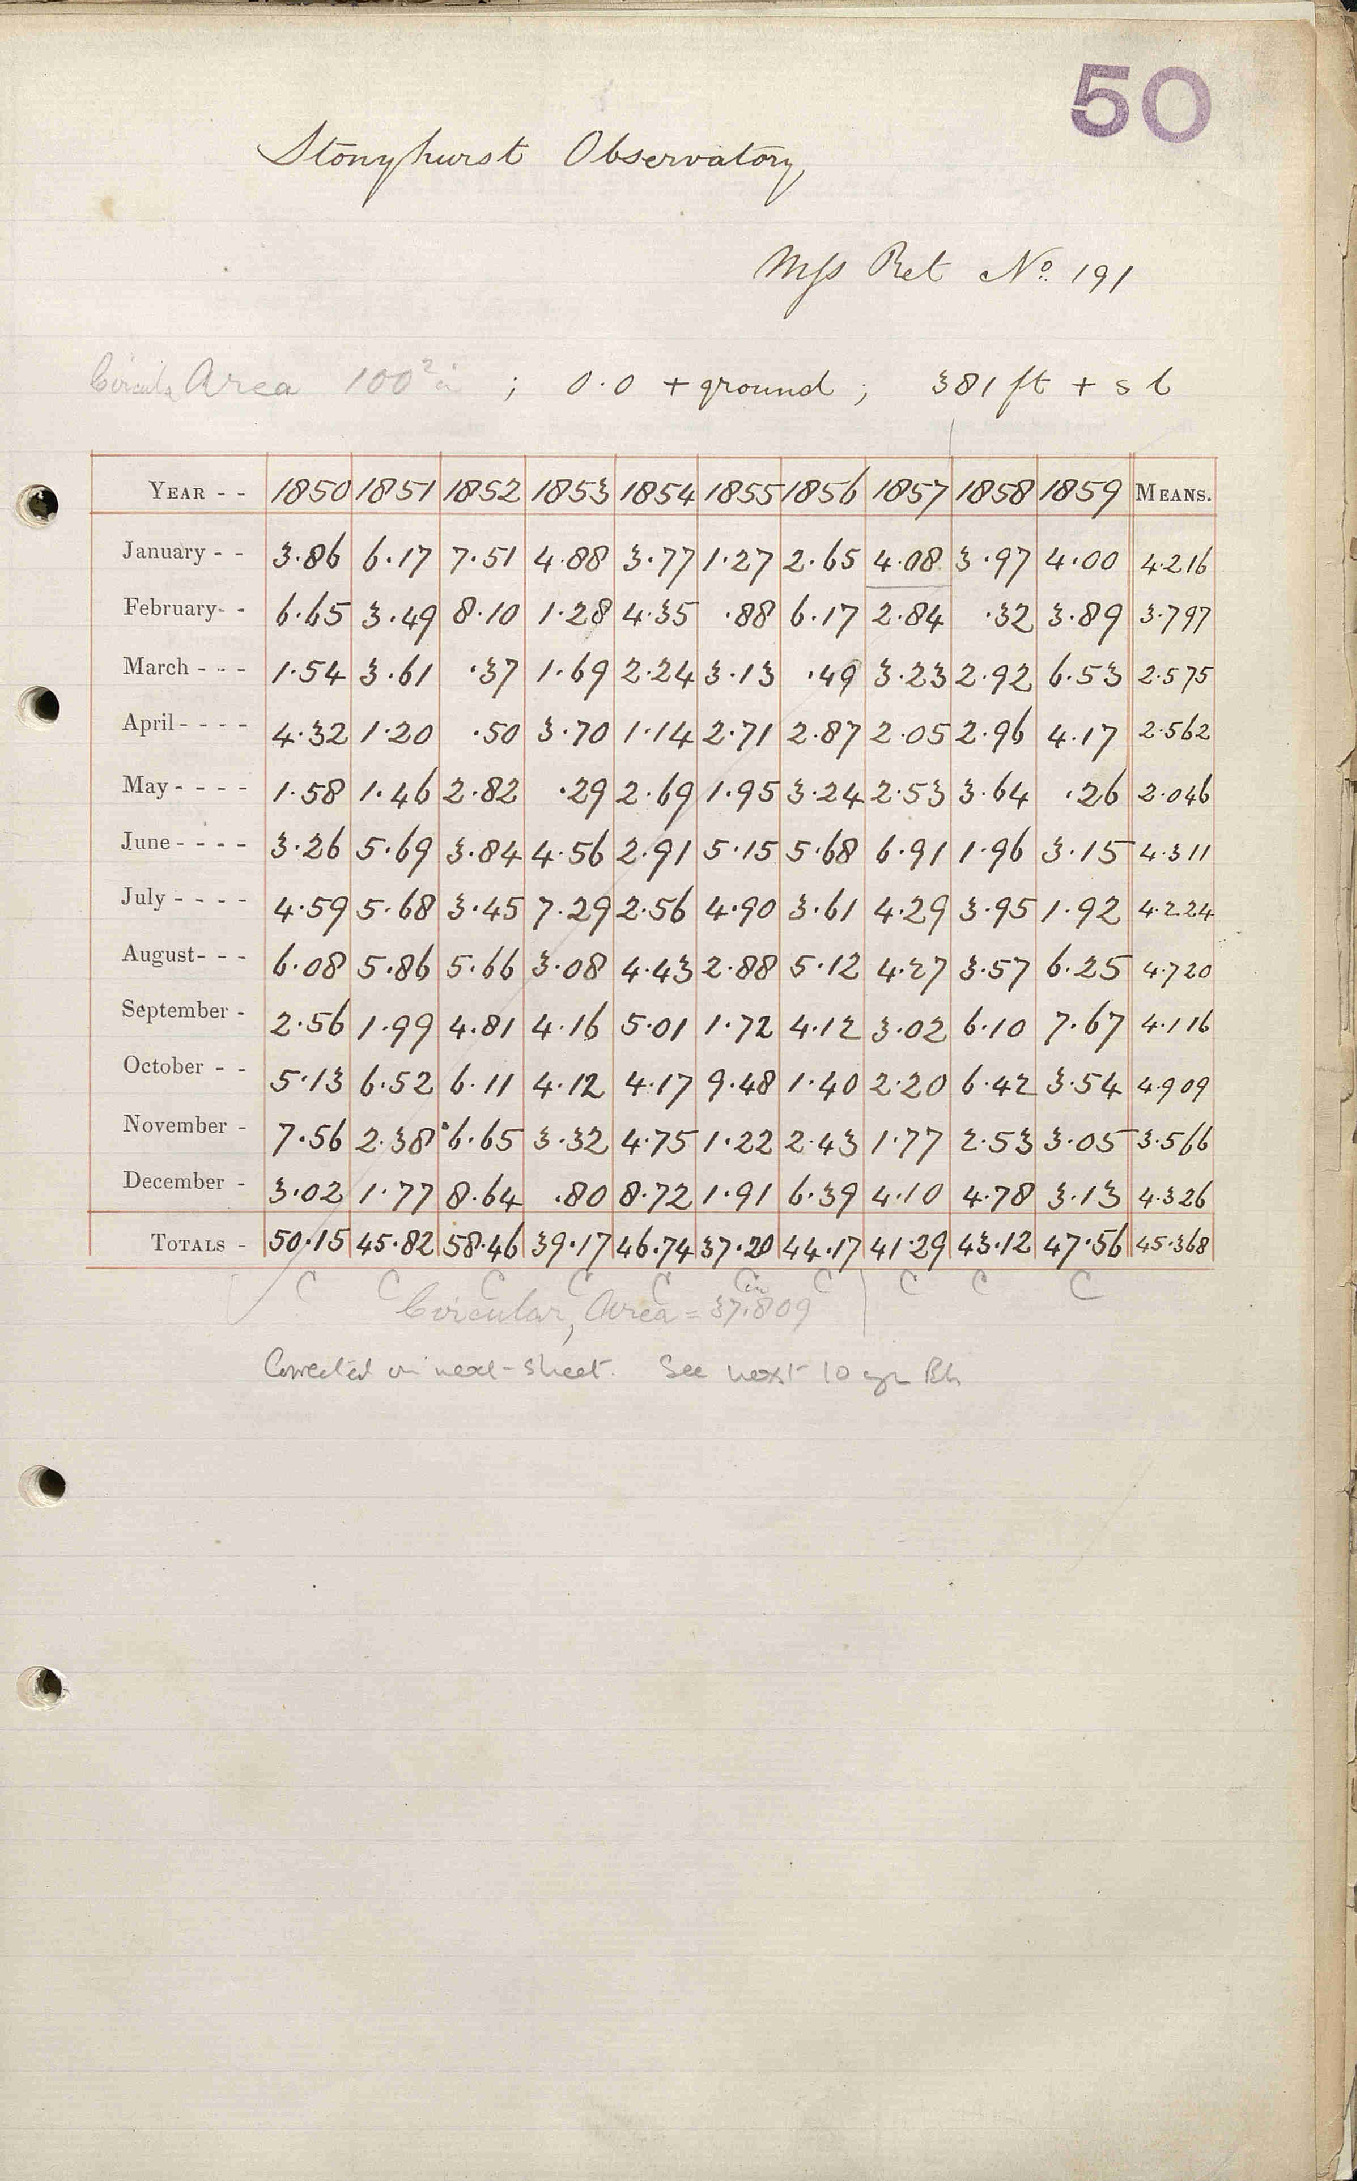 50
Stonyhurst Observatory
Mss Ret No. 191
Circula Area 100² in ; 0.0 + ground ; 381 ft + s l
YEAR - - 1850 1851 1852 1853 1854 1855 1856 1857 1858 1859 MEANS.
January - - 3.86 6.17 7.51 4.88 3.77 1.27 2.65 4.08 3.97 4.00 4.216
February - - 6.65 3.49 8.10 1.28 4.35 .88 6.17 2.84 .32 3.89 3.797
March - - - 1.54 3.61 .37 1.69 2.24 3.13 .49 3.23 2.92 6.53 2.575
April - - - - 4.32 1.20 .50 3.70 1.14 2.71 2.87 2.05 2.96 4.17 2.562
May - - - - 1.58 1.46 2.82 .29 2.69 1.95 3.24 2.53 3.64 .26 2.046
June - - - - 3.26 5.69 3.84 4.56 2.91 5.15 5.68 6.91 1.96 3.15 4.311
July - - - - 4.59 5.68 3.45 7.29 2.56 4.90 3.61 4.29 3.95 1.92 4.224
August - - - 6.08 5.86 5.66 3.08 4.43 2.88 5.12 4.27 3.57 6.25 4.720
September - 2.56 1.99 4.81 4.16 5.01 1.72 4.12 3.02 6.10 7.67 4.116
October - - 5.13 6.52 6.11 4.12 4.17 9.48 1.40 2.20 6.42 3.54 4.909
November - 7.56 2.38 6.65 3.32 4.75 1.22 2.43 1.77 2.53 3.05 3.566
December - 3.02 1.77 8.64 .80 8.72 1.91 6.39 4.10 4.78 3.13 4.326
TOTALS - 50.15 45.82 58.46 39.17 46.74 37.20 44.17 41.29 43.12 47.56 45.368
C C C C C C C C C C
Circular, Area = 37.809 in
Corrected on next-sheet. See next 10 yr Bk